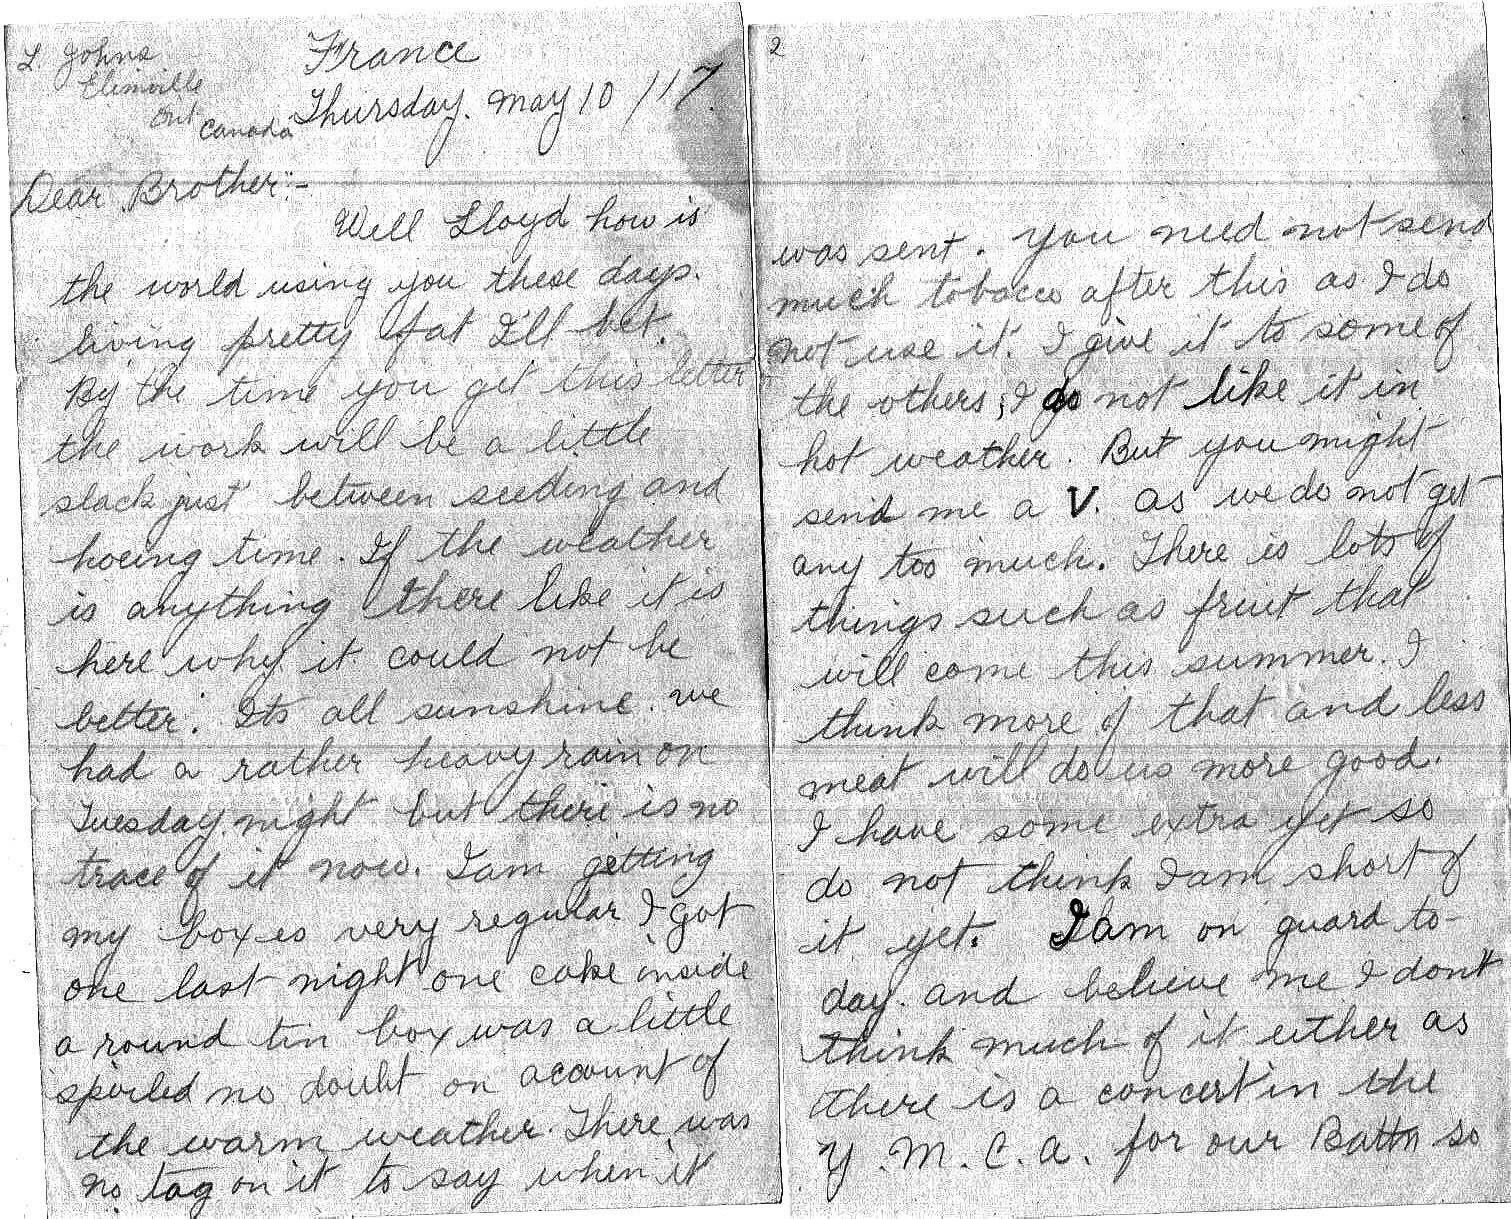 L. Johns
Elimville
Ont
Canada
France
Thursday. May 10 /17
Dear Brother:-
Well Lloyd how is
the world using you these days.
living pretty fat I'll bet.
By the time you get this letter
the work will be a little
slack just between seeding and
hoeing time. If the weather
is anything there like it is
here why it could not be
better. Its all sunshine. we
had a rather heavy rain on
Tuesday night but there is no
trace of it now. I am getting
my boxes very regular I got
one last night one cake inside
a round tin box was a little
spoiled no doubt on account of
the warm weather. There was
no tag on it to say when it
2
was sent. You need not send
much tobacco after this as I do
not use it. I give it to some of
the others, I do not like it in
hot weather. But you might
send me a V. as we do not get
any too much. There is lots of
things such as fruit that
will come this summer. I
think more of that and less
meat will do us more good.
I have some extra yet so
do not think I am short of
it yet. I am on guard to-
day. and believe me I dont
think much of it either as
there is a concert in the
Y.M.C.A. for our Battn so